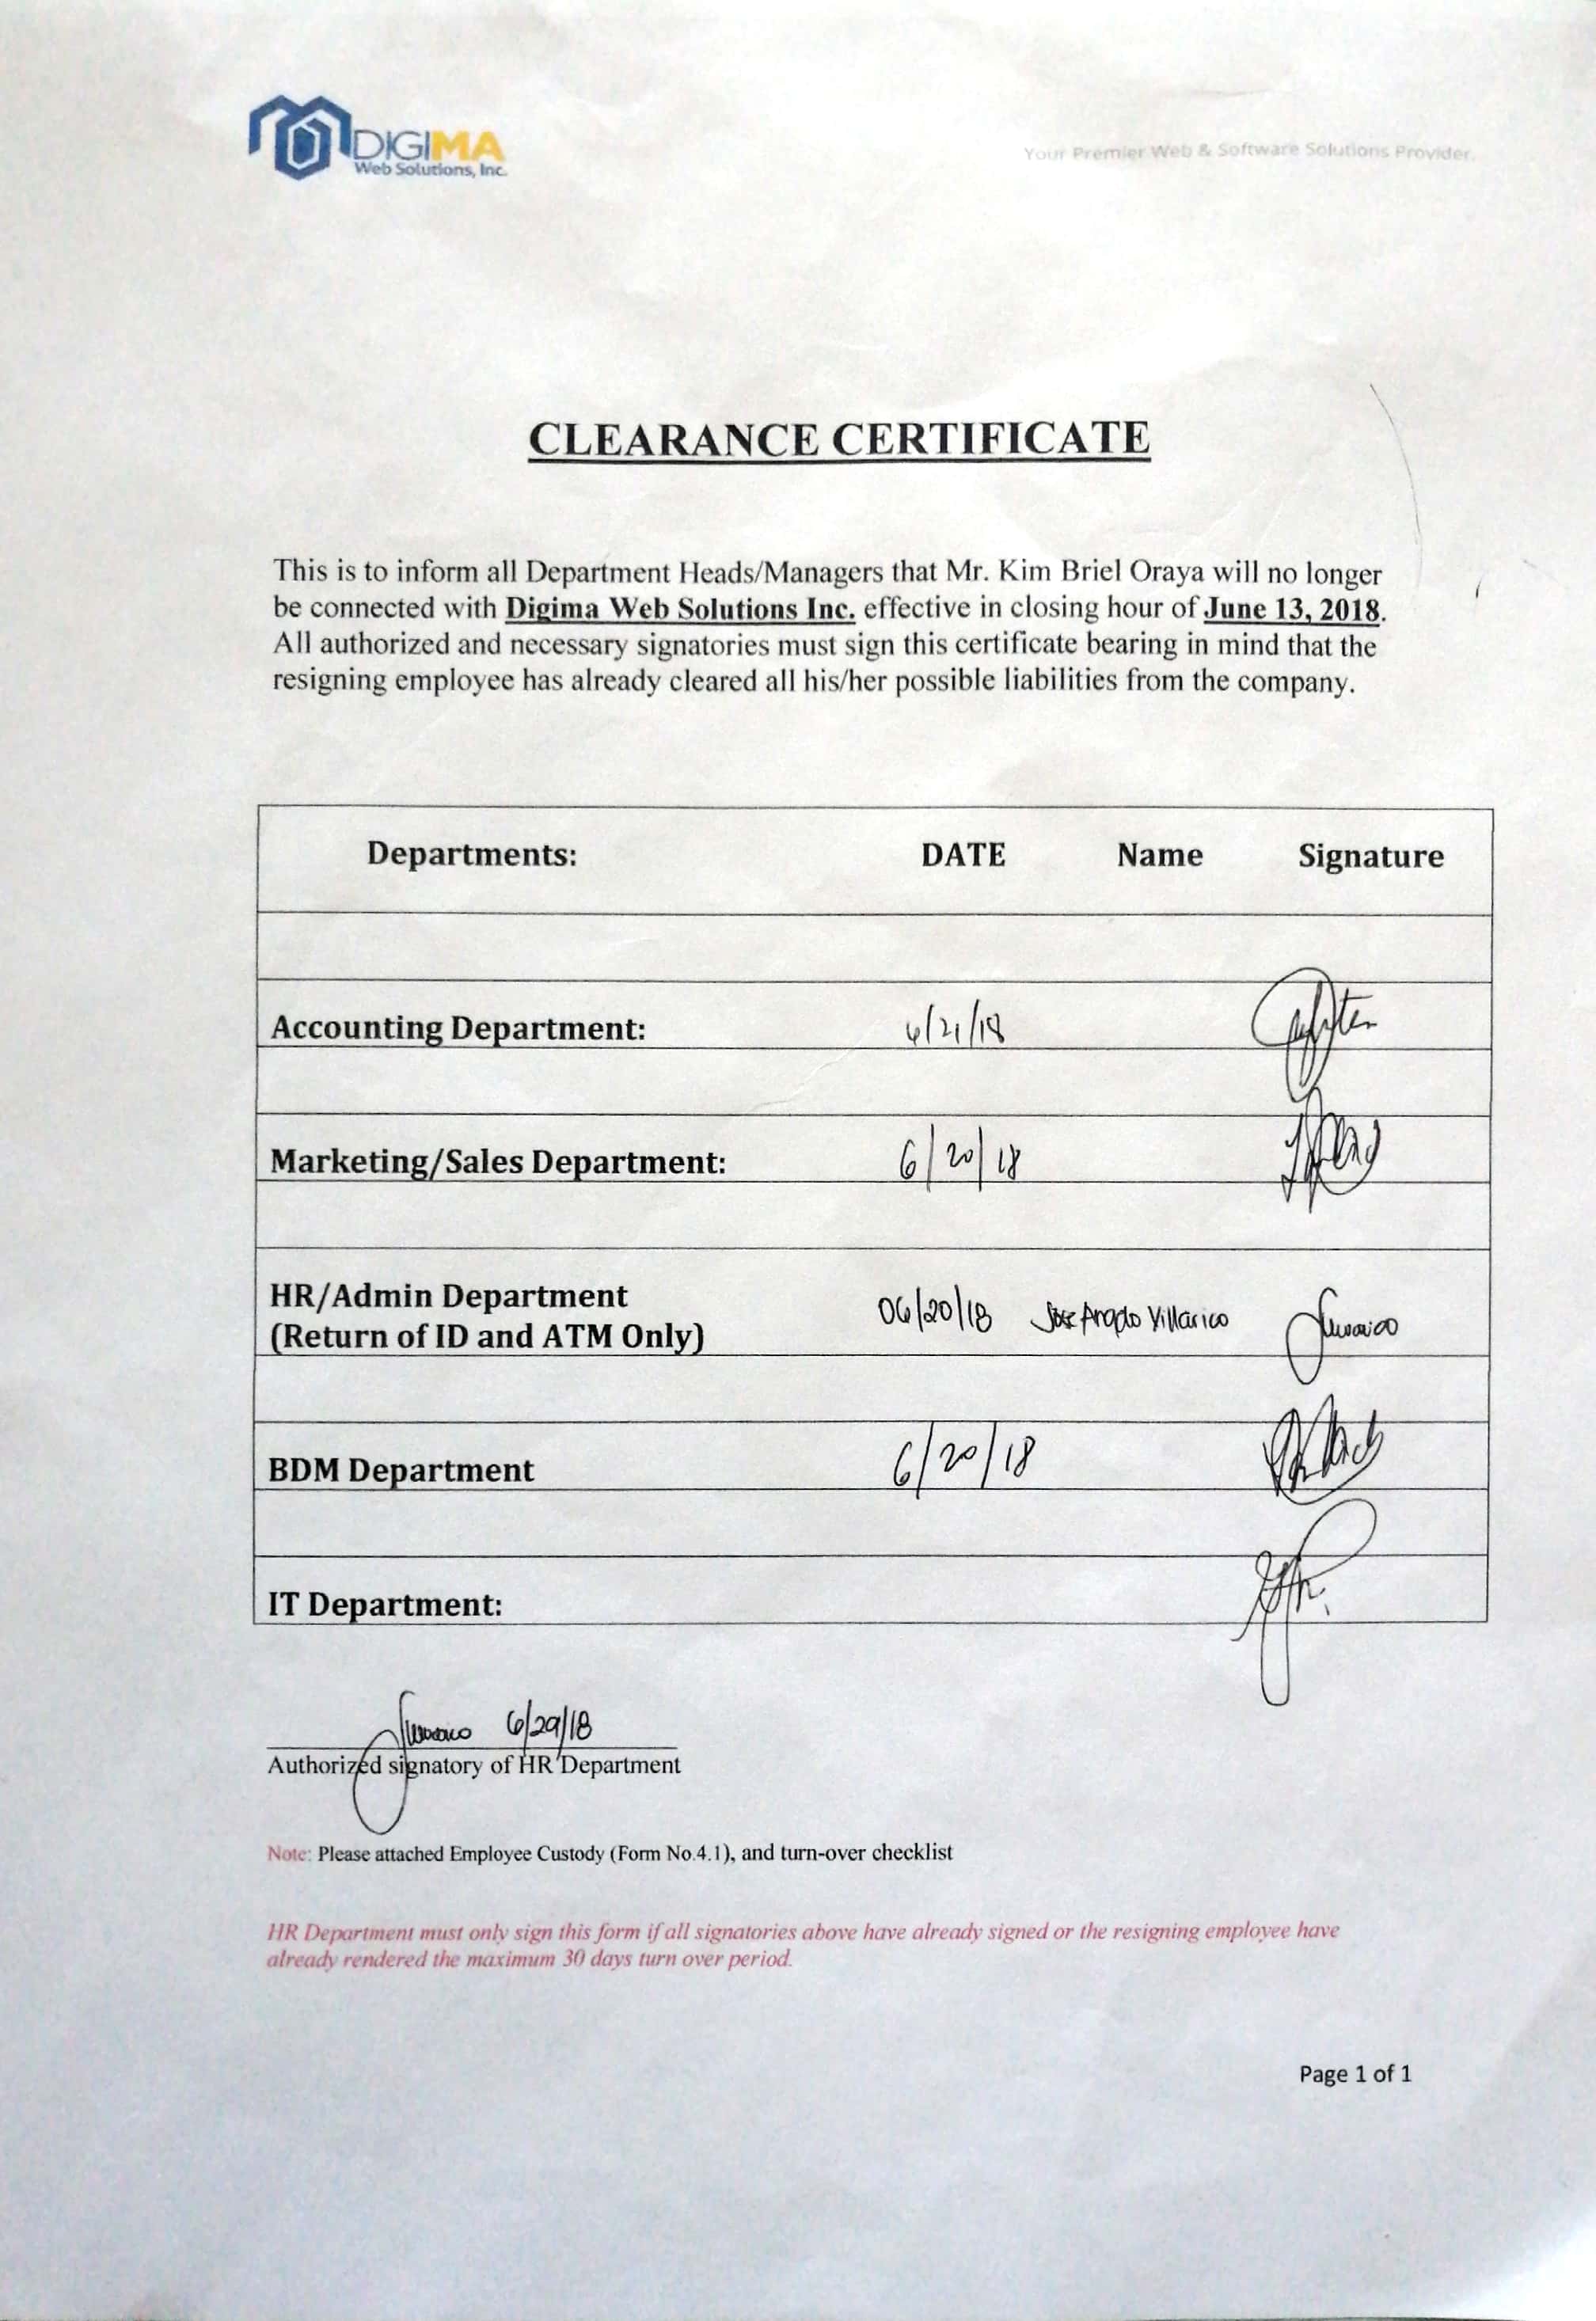 DIGIMA
Web Solutions, Inc.
Your Premier Web & Software Solutions Provider.
CLEARANCE CERTIFICATE
This is to inform all Department Heads/Managers that Mr. Kim Briel Oraya will no longer
be connected with Digima Web Solutions Inc. effective in closing hour of June 13, 2018.
All authorized and necessary signatories must sign this certificate bearing in mind that the
resigning employee has already cleared all his/her possible liabilities from the company.
Departments: DATE Name Signature
Accounting Department: 6/21/18
Marketing/Sales Department: 6/20/18
HR/Admin Department
(Return of ID and ATM Only) 06/20/18 Jose Angelo Villarico
BDM Department 6/20/18
IT Department:
6/29/18
Authorized signatory of HR Department
Note: Please attached Employee Custody (Form No.4.1), and turn-over checklist
HR Department must only sign this form if all signatories above have already signed or the resigning employee have
already rendered the maximum 30 days turn over period.
Page 1 of 1